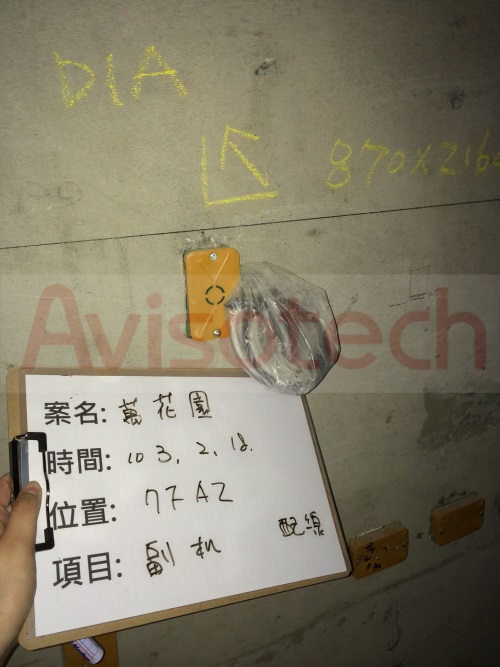 D1A
870×2160
Avisotech
案名: 萬花園
時間: 103.2.18.
位置: 7FA2
項目: 副机 配線